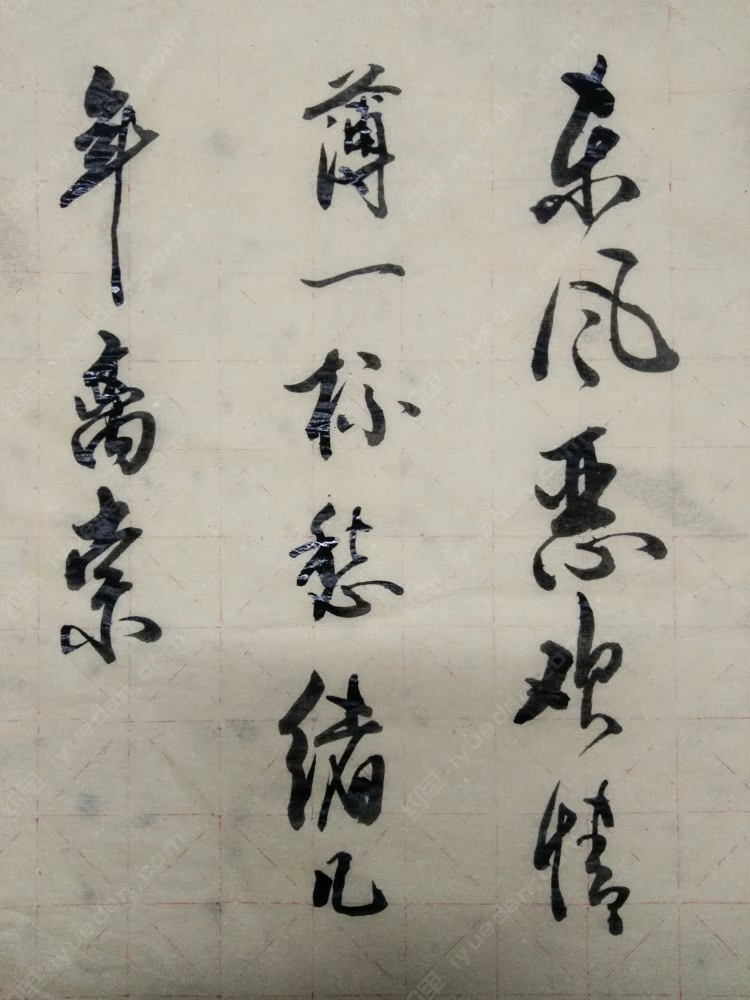 东风恶欢情
薄一杯愁绪几
年离索